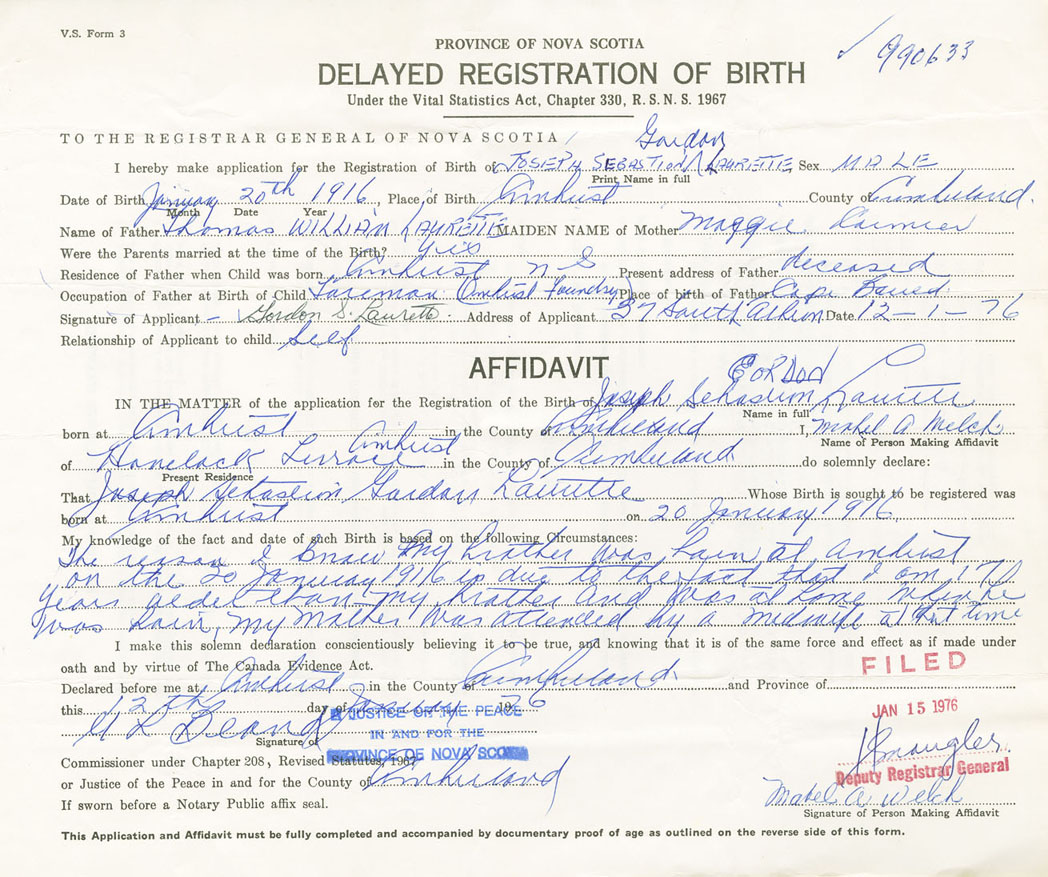 V.S. Form 3
990633
PROVINCE OF NOVA SCOTIA
DELAYED REGISTRATION OF BIRTH
Under the Vital Statistics Act, Chapter 330, R.S.N.S. 1967
TO THE REGISTRAR GENERAL OF NOVA SCOTIA
Gordon
I hereby make application for the Registration of Birth of JOSEPH SEBASTION LAURETTE Sex MALE
Print Name in full
Date of Birth January 20th 1916, Place of Birth Amhust County of Cumberland.
Month Date Year
Name of Father Thomas WILLIAM LAURETTE MAIDEN NAME of Mother Maggie
Were the Parents married at the time of the Birth? Yes
Residence of Father when Child was born Amhust N S Present address of Father deceased
Occupation of Father at Birth of Child Foreman Amhust Foundry Place of birth of Father Cape Baued
Signature of Applicant - Gordon S. Laurette. Address of Applicant 37 South Date 12-1-76
Relationship of Applicant to child Self
AFFIDAVIT
GORDON
IN THE MATTER of the application for the Registration of the Birth of Joseph Sebastion Laurette
Name in full
born at Amhust in the County of Cumberland I, Mabel A Welch
Name of Person Making Affidavit
Amhust
of Havelock Terrace in the County of Cumberland do solemnly declare:
Present Residence
That Joseph Sebastion Gordon Laurette Whose Birth is sought to be registered was
born at Amhust on 20 January 1916
My knowledge of the fact and date of such Birth is based on the following Circumstances:
The reason I know my brother was born at Amhust
on the 20 January 1916 is due to the fact that I am 17
years older than my brother and was at home when he
was born, my mother was attended by a midwife at that time
I make this solemn declaration conscientiously believing it to be true, and knowing that it is of the same force and effect as if made under
oath and by virtue of The Canada Evidence Act.
FILED
Declared before me at Amhust in the County of Cumberland and Province of
this 12th day of January 1976
JAN 15 1976
A JUSTICE OF THE PEACE
IN AND FOR THE
PROVINCE OF NOVA SCOTIA
Signature of
Commissioner under Chapter 208, Revised Statutes, 1967
Deputy Registrar General
or Justice of the Peace in and for the County of Cumberland
Mabel A Welch
If sworn before a Notary Public affix seal.
Signature of Person Making Affidavit
This Application and Affidavit must be fully completed and accompanied by documentary proof of age as outlined on the reverse side of this form.